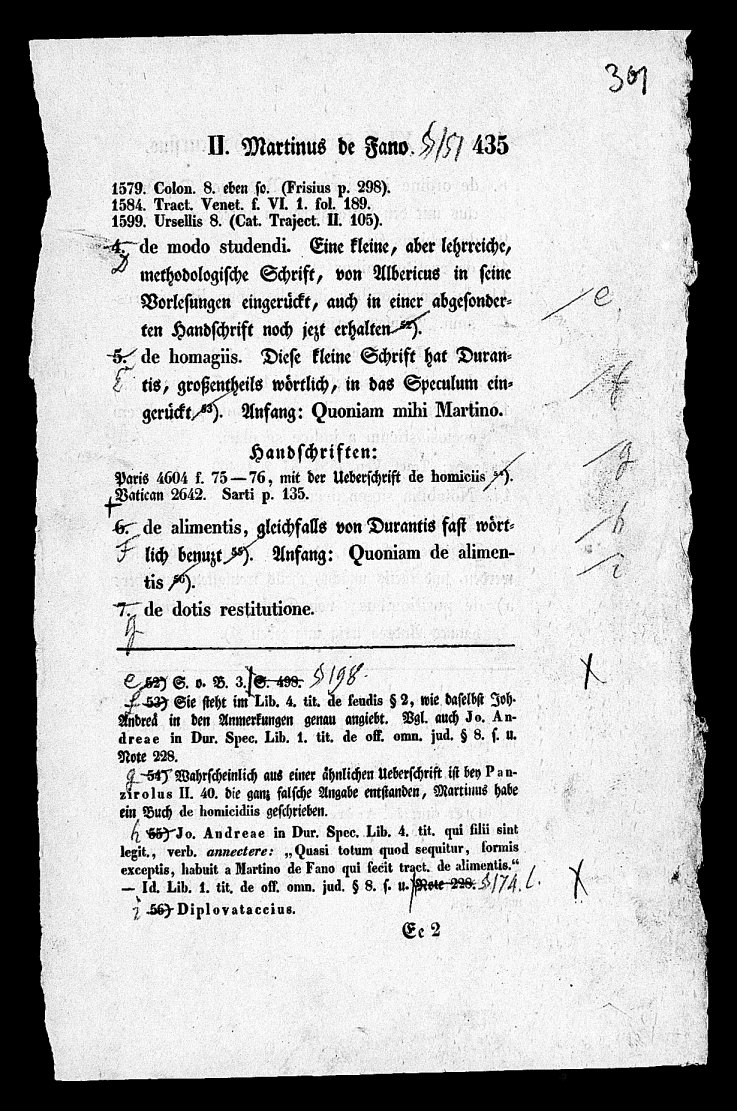 301
II. Martinus de Fano. § 151 435
1579. Colon. 8. eben so. (Frisius p. 298).
1584. Tract. Venet. f. VI. 1. fol. 189.
1599. Ursellis 8. (Cat. Traject. II. 105).
4. de modo studendi. Eine kleine, aber lehrreiche,
D methodologische Schrift, von Albericus in seine
Vorlesungen eingerückt, auch in einer abgesonder- e
ten Handschrift noch jezt erhalten 52).
5. de homagiis. Diese kleine Schrift hat Duran-
E tis, großentheils wörtlich, in das Speculum ein- f
gerückt 53). Anfang: Quoniam mihi Martino.
Handschriften:
Paris 4604 f. 75—76, mit der Ueberschrift de homiciis 54). g
Vatican 2642. Sarti p. 135.
6. de alimentis, gleichfalls von Durantis fast wört- h
F lich benuzt 55). Anfang: Quoniam de alimen- i
tis 56).
7. de dotis restitutione.
g
e 52) S. o. B. 3. S. 498. § 198. X
f 53) Sie steht im Lib. 4. tit. de feudis § 2, wie daselbst Joh.
Andreä in den Anmerkungen genau angiebt. Vgl. auch Jo. An-
dreae in Dur. Spec. Lib. 1. tit. de off. omn. jud. § 8. s. u.
Note 228.
g 54) Wahrscheinlich aus einer ähnlichen Ueberschrift ist bey Pan-
zirolus II. 40. die ganz falsche Angabe entstanden, Martinus habe
ein Buch de homicidiis geschrieben.
h 55) Jo. Andreae in Dur. Spec. Lib. 4. tit. qui filii sint
legit., verb. annectere: „Quasi totum quod sequitur, formis
exceptis, habuit a Martino de Fano qui fecit tract. de alimentis.“
— Id. Lib. 1. tit. de off. omn. jud. § 8. s. u. Note 228. § 174. l. X
i 56) Diplovataccius.
Ee 2